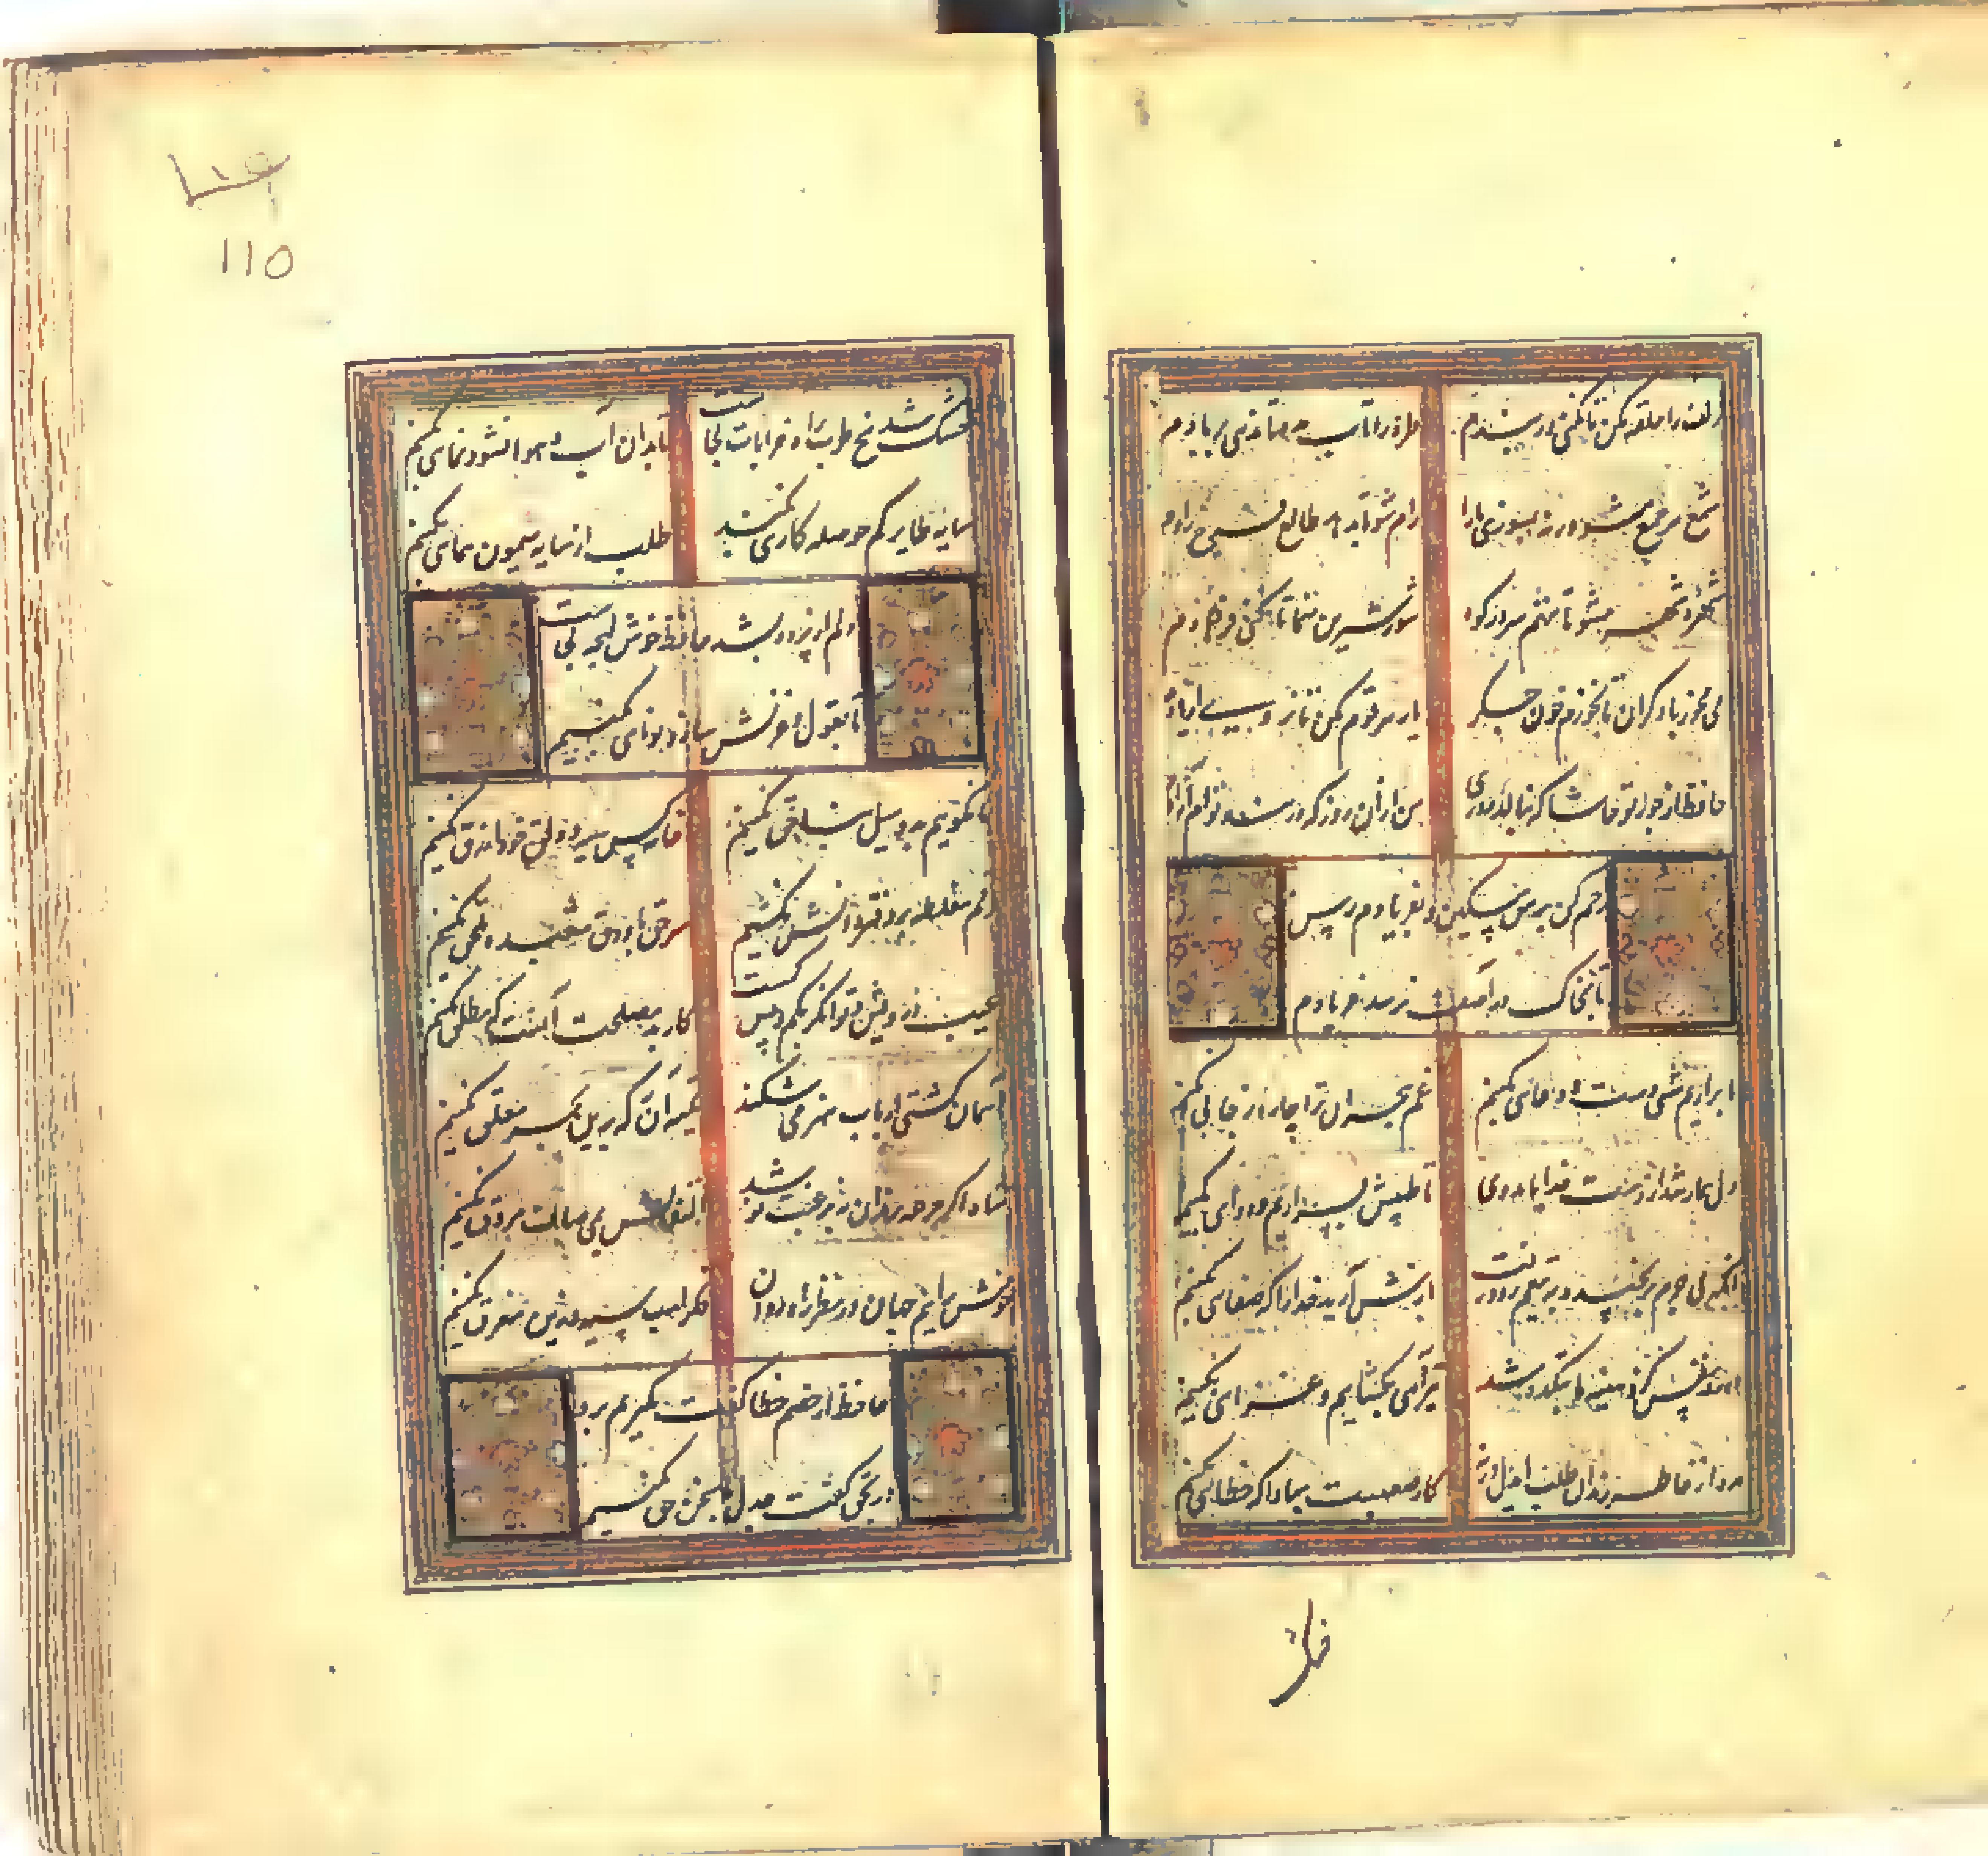 زلف را حلقه مکن تا نکنی در بندم طره را تاب مده تا ندهی بر بادم
شمع هر جمع مشو ورنه بسوزی ما را رام شو تا بدهد طالع فرخ دادم
شهره شهر مشو تا ننهم سر در کوه شور شیرین منما تا نکنی فرهادم
می مخور با دگران تا نخورم خون جگر یار
حافظ از جور تو حاشا که بنالد روزی من از آن روز که در بند توام آزادم
رحم کن بر من مسکین و بفریادم رس
تا بخاک در آصف نرسد فریادم
ما برآریم شبی دست و دعائی بکنیم غم هجران ترا چاره ز جائی بکنیم
دل بیمار شد از دست خدا را مددی تا طبیبش بسر آریم و دوائی بکنیم
آنکه بی جرم برنجید و بتیغم زد و رفت بازش آرید خدا را که صفائی بکنیم
در ره نفس کزو سینه ما بتکده شد تیر آهی بگشائیم و غزائی بکنیم
مدد از خاطر رندان طلب ای دل ورنه کار صعبست مبادا که خطائی بکنیم
خشک شد بیخ طرب راه خرابات کجاست تا بدان آب و هوا نشو و نمائی بکنیم
سایه طایر کم حوصله کاری نکند طلب از سایه میمون همائی بکنیم
دلم از پرده بشد حافظ خوش لهجه کجاست
تا بقول و غزلش ساز و نوائی بکنیم
ما نگوییم بد و میل بناحق نکنیم جامه کس سیه و دلق خود ازرق نکنیم
رقم مغلطه بر دفتر دانش نکشیم سر حق با ورق شعبده ملحق نکنیم
عیب درویش و توانگر بکم و بیش کار بد مصلحت آنست که مطلق نکنیم
آسمان کشتی ارباب هنر می شکند تکیه آن به که برین بحر معلق نکنیم
شاه اگر جرعه رندان نه بحرمت نوشد التفاتش بمی صاف مروق نکنیم
خوش برانیم جهان در نظر راه روان فکر اسب سیه و زین مغرق نکنیم
حافظ ار خصم خطا گفت نگیریم برو
ور بحق گفت جدل با سخن حق نکنیم
خشک
110